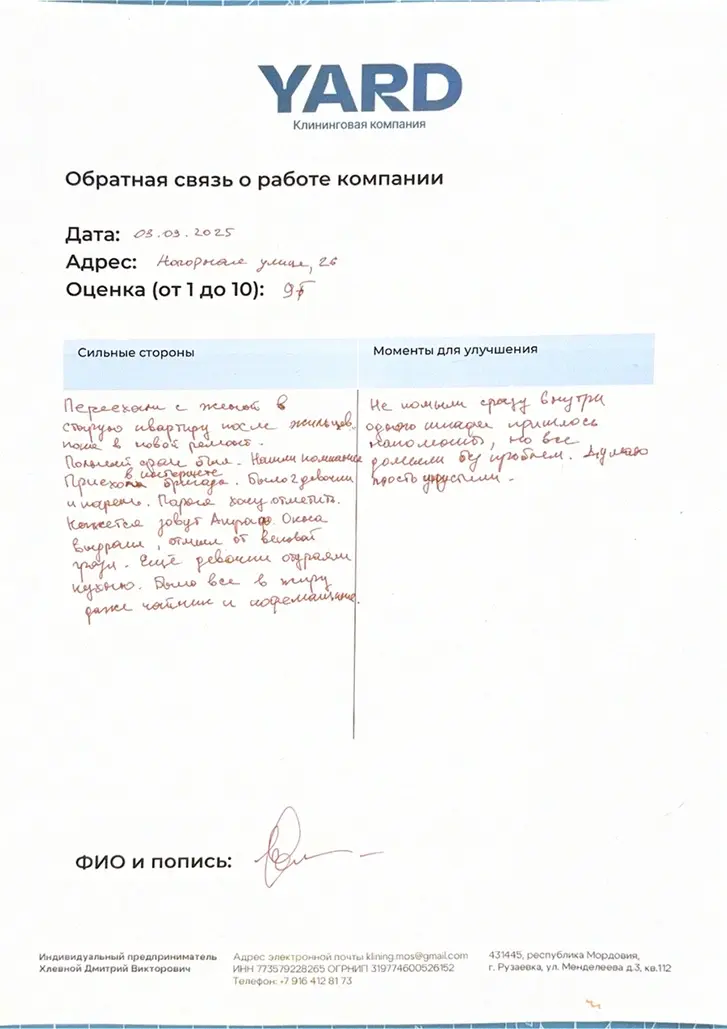 YARD
Клининговая компания
Обратная связь о работе компании
Дата: 03.03.2025
Адрес: Нагорная улица, 26
Оценка (от 1 до 10): 9
Сильные стороны
Переехали с женой в
старую квартиру после жильцов,
пока в новой ремонт.
Полный срач был. Нашли компанию
в интернете
Приехала бригада. Было 2 девочки
и парень. Парня хочу отметить.
Кажется зовут Окна
выдраил, отмыл от вековой
грязи. Ещё девочки отдраяли
кухню. Было все в жиру
даже чайник и кофемашина.
Моменты для улучшения
Не помыли сразу внутри
одного шкафа пришлось
напомнить, но все
домыли без проблем. Думаю
просто упустили.
ФИО и попись:
Индивидуальный предприниматель
Хлевной Дмитрий Викторович
Адрес электронной почты klining.mos@gmail.com
ИНН 773579228265 ОГРНИП 319774600526152
Телефон: +7 916 412 81 73
431445, республика Мордовия,
г. Рузаевка, ул. Менделеева д.3, кв.112